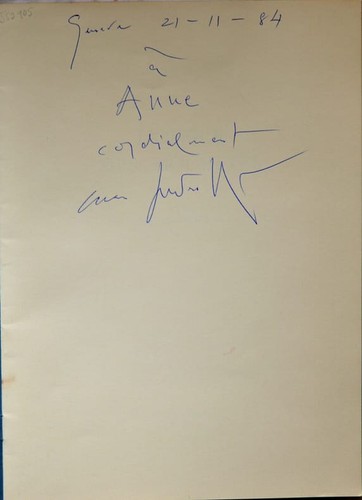 Genève 21-11-84
à
Anne
cordialement